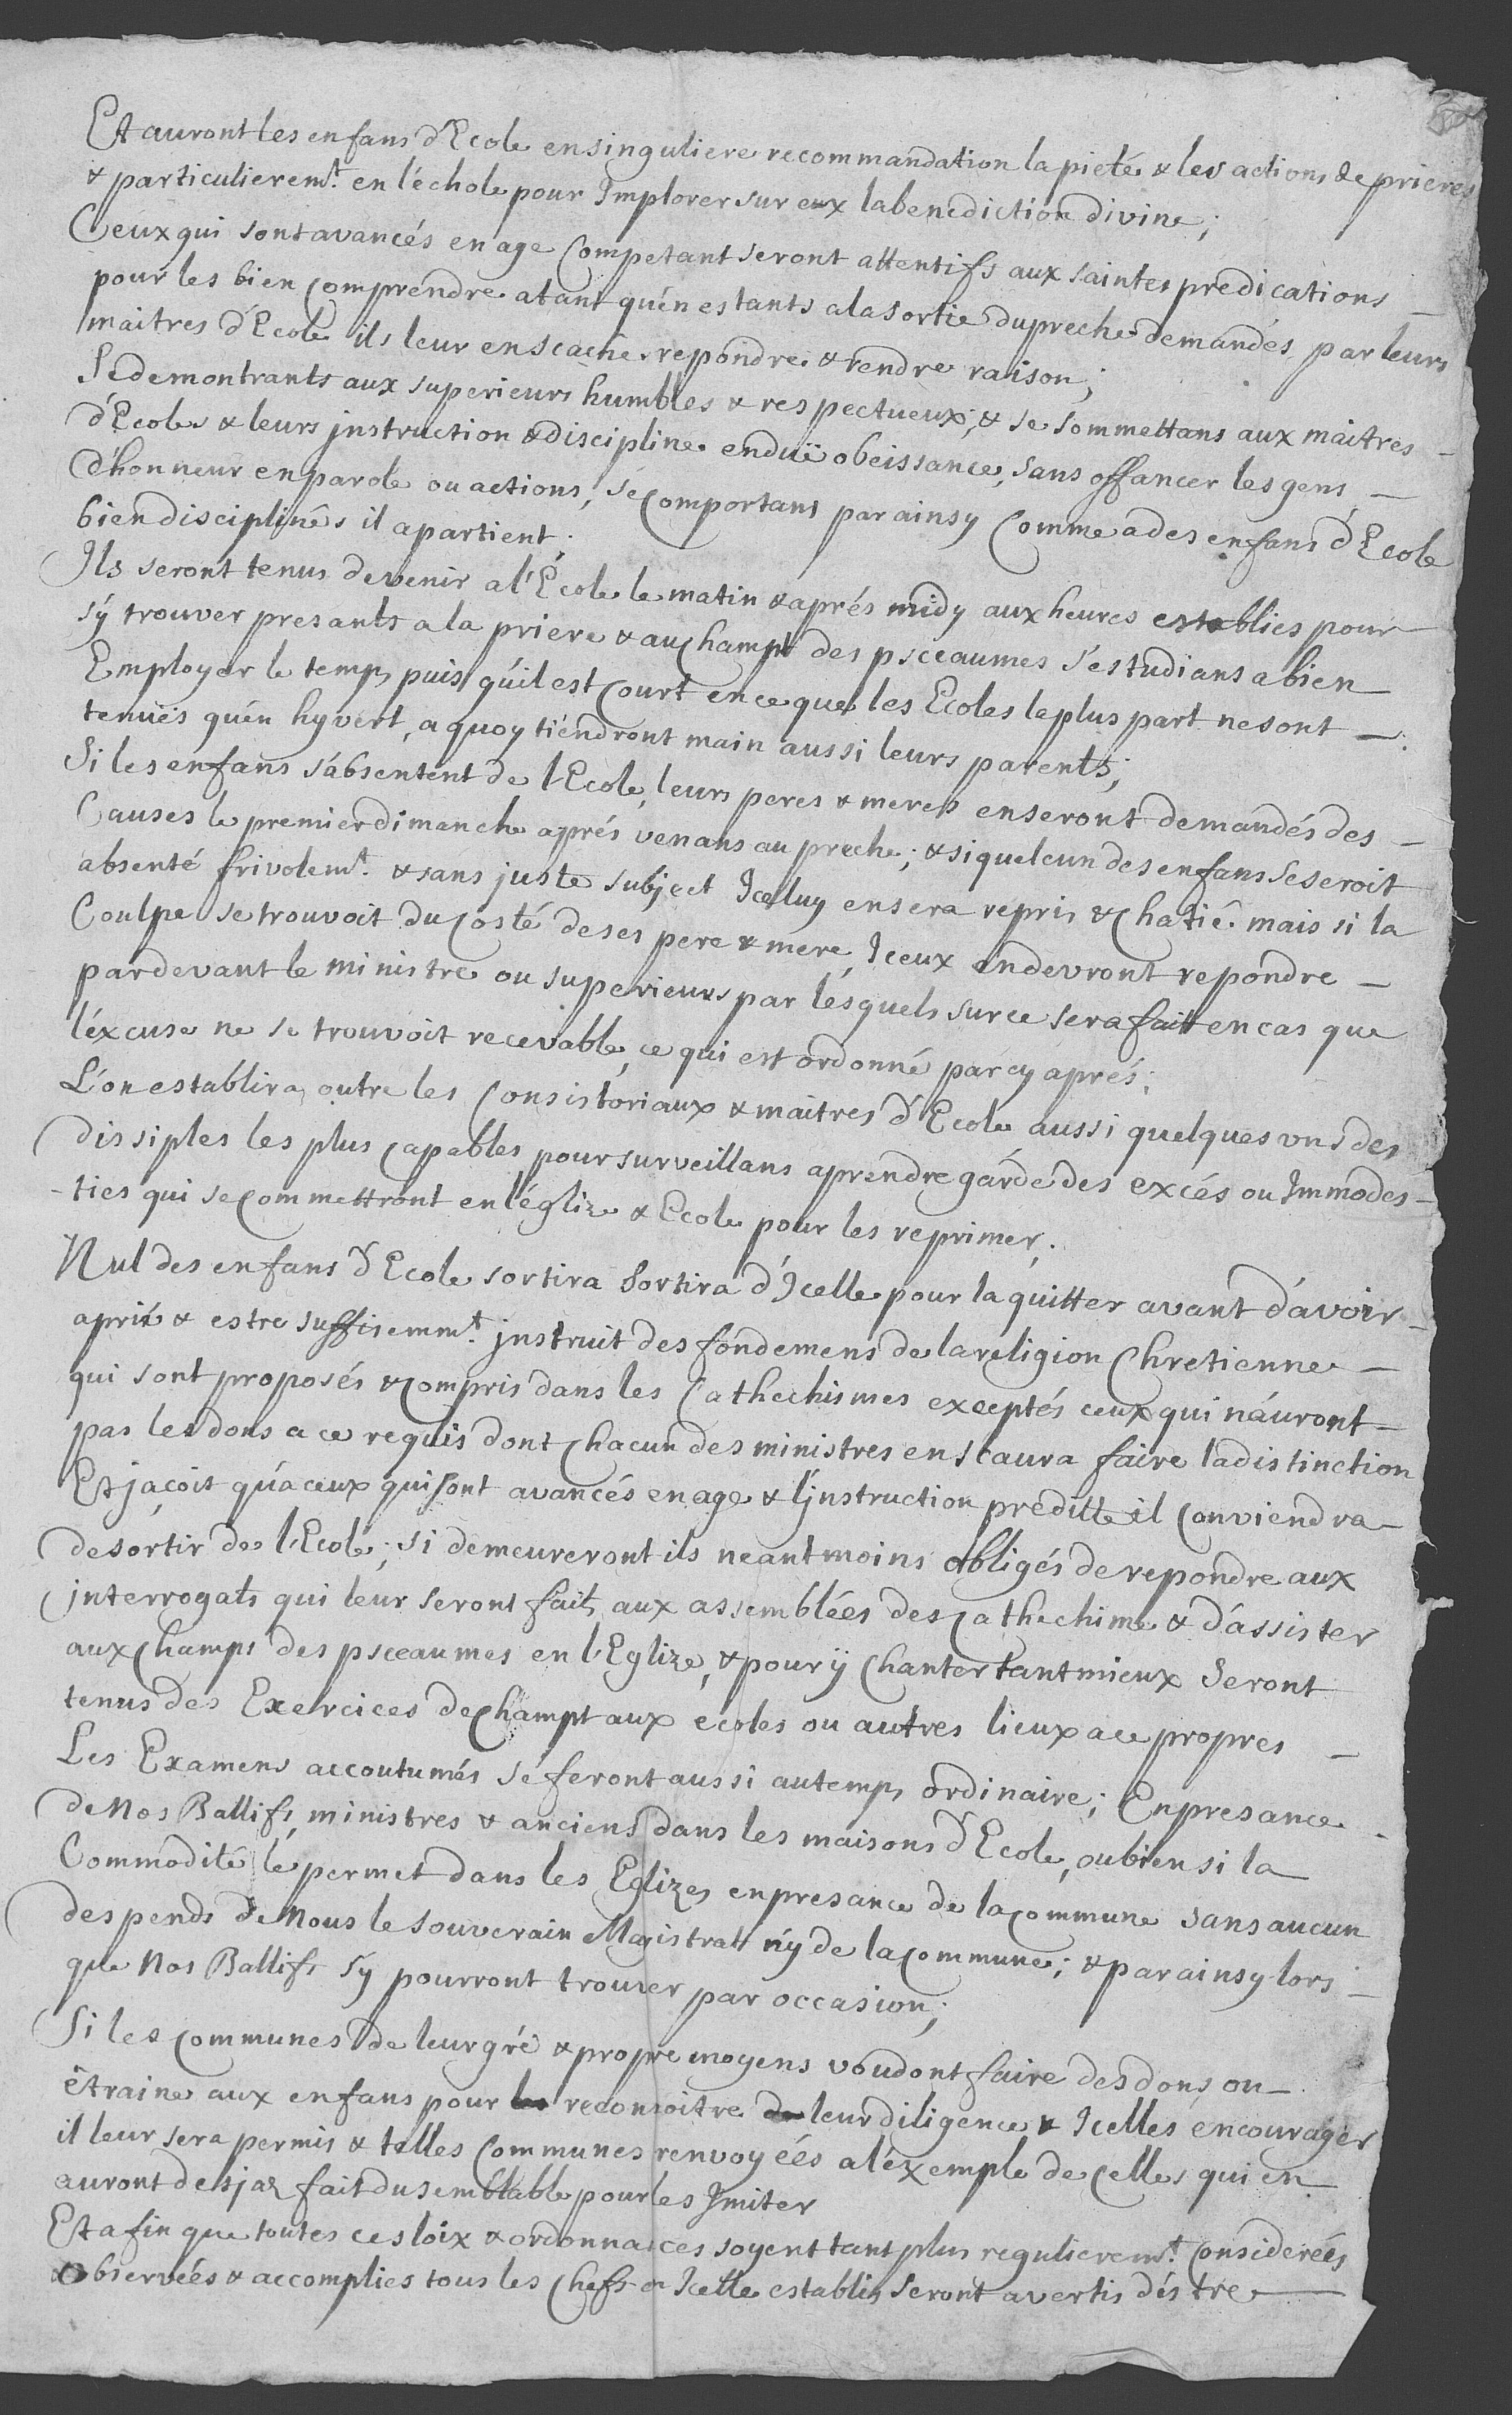 Et auront les enfans d'Ecole en singuliere recommandation la pieté & les actions de prieres
& particulierem.t en l'échole pour Implorer sur eux la benediction divine;
Ceux qui sont avancés en age Competant seront attentifs aux saintes predications
pour les bien comprendre atant qu'en estants a la sortie du preche demandés par leurs
maitres d'Ecole ils leur en scache repondre & rendre raison;
Se demontrants aux superieurs humbles & respectueux; & se sommettans aux maitres
d'Ecoles & leurs jnstruction & discipline en duë obeissance, sans offancer les gens
d'honneur en parole ou actions, se comportans par ainsy Comme a des enfans d'Ecole
bien disciplinés il apartient.
Ils seront tenus de venir a l'Ecole le matin & aprés midy aux heures establies pour
s'y trouver presants a la priere & au champt des psceaumes s'estudians a bien
Employer le temps puis qu'il est Court en ce que les Ecoles le plus part ne sont
tenuës qu'en hyvert, a quoy tiendront main aussi leurs parents;
Si les enfans s'absentent de l'Ecole, leurs peres & meres en seront demandés des
Causes le premier dimanche aprés venans au preche; & si quelcun des enfans se seroit
absenté frivolem.t & sans juste subject Iceluy en sera repris & chatié. mais si la
Coulpe se trouvoit du costé de ses pere & mere, Iceux en devront repondre
pardevant le ministre ou superieurs par lesquels sur ce sera fait en cas que
l'éxcuse ne se trouvoit recevable, ce qui est ordonné par cy aprés;
L'on establira outre les Consistoriaux & maitres d'Ecole aussi quelques uns des
dissiples les plus capables pour surveillans a prendre garde des excés ou Immodes-
-ties qui se commettront en l'églize & Ecole pour les reprimer.
Nul des enfans d'Ecole sortira Sortira d'Icelle pour la quitter avant d'avoir
apris & estre suffisemm.t jnstruit des fondemens de la religion Chretienne
qui sont proposés & compris dans les Cathechismes exceptés ceux qui n'auront
pas les dons a ce requis dont chacun des ministres en scaura faire la distinction
Et jacoit qu'a ceux qui sont avancés en age & l'jnstruction preditte il Conviendra
de sortir de l'Ecole; si demeureront ils neantmoins obligés de repondre aux
jnterrogats qui leur seront faits aux assemblées des Cathechime & d'assister
aux champs des psceaumes en l'Eglize, & pour ÿ Chanter tant mieux Seront
tenus des Exercices de champt aux écoles ou autres lieux a ce propres
Les Examens accoutumés se feront aussi au temps ordinaire; En presance
de Nos Ballifs, ministres & anciens dans les maisons d'Ecole, ou bien si la
Commodité le permet dans les Eglizes en presance de la commune sans aucun
despends de Nous le souverain Magistratt n'y de la commune; & par ainsy lors
que Nos Ballifs s'y pourront trouver par occasion;
Si les communes de leur gré & propre moyens voudont faire des dons ou
êtraine aux enfans pour reconoitre leur diligence & Icelles encourager
il leur sera permis & telles Communes renvoyéés a l'éxemple de celles qui en
auront desja fait du semblable pour les Imiter
Et afin que toutes ces loix & ordonnances soyent tant plus regulierem.t Considerées
observées & accomplies tous les Chefs en Icelle establis seront avertis d'éstre